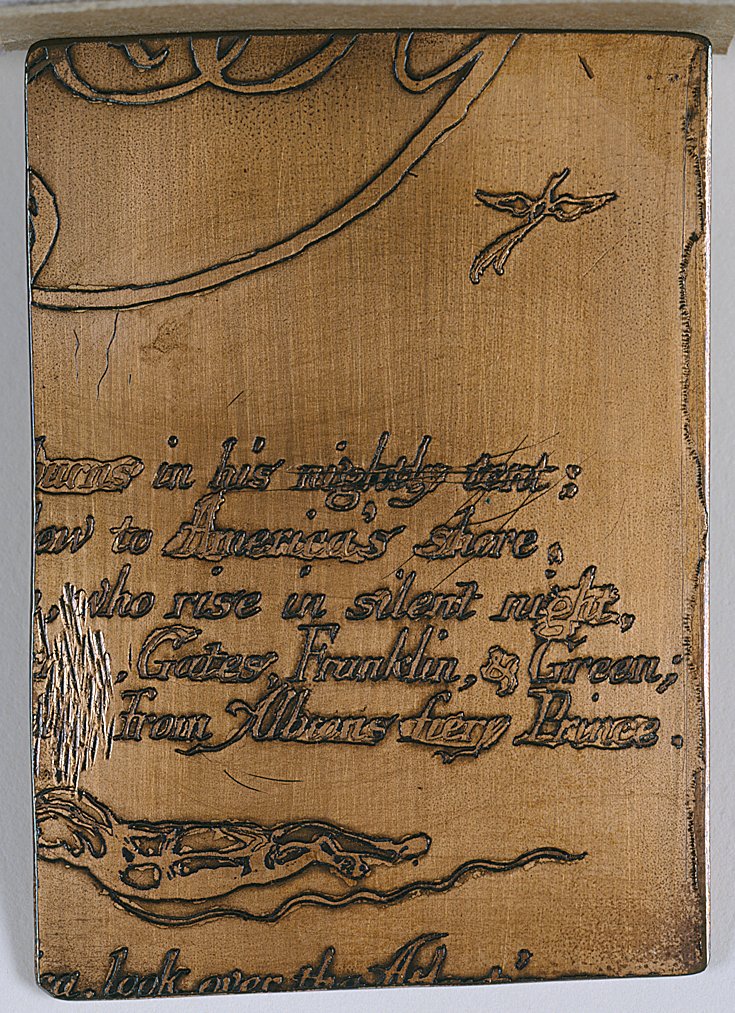 burns in his nightly tent;
ow to America's shore,
, who rise in silent night,
, Gates, Franklin, & Green;
from Albions fiery Prince.
ca, look over the Atlanti